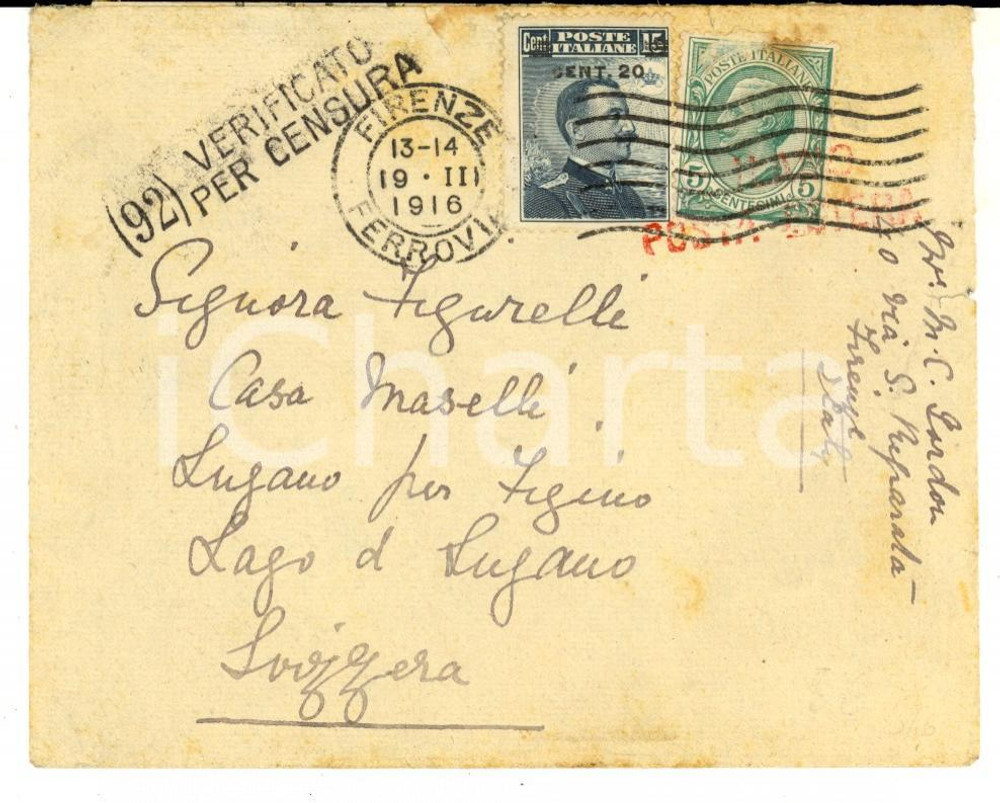 VERIFICATO
PER CENSURA
(92)
FIRENZE
13-14
19 · III
1916
FERROVIA
Cent. POSTE 15
ITALIANE
CENT. 20
POSTE ITALIANE
5 CENTESIMI 5
POSTA ESTERA
Signora Figurelli
Casa Maselli
Lugano per Figino
Lago d Lugano
Svizzera
M. C. Gordon
via S. Reparata
Firenze
Italy
iCharta